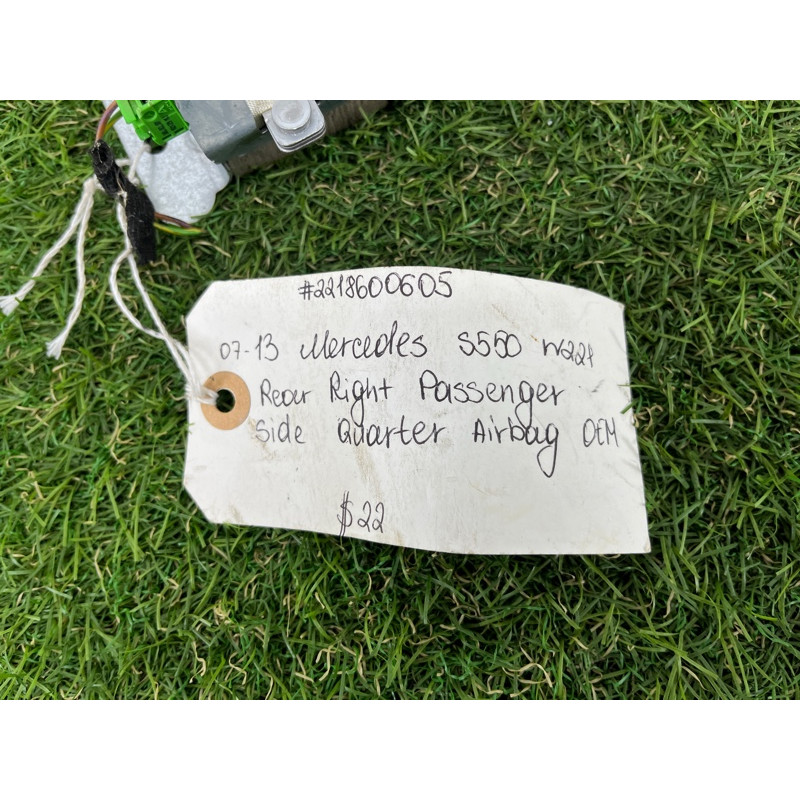 #2218600605
07-13 Mercedes S550 W221
Rear Right Passenger
Side Quarter Airbag OEM
$22